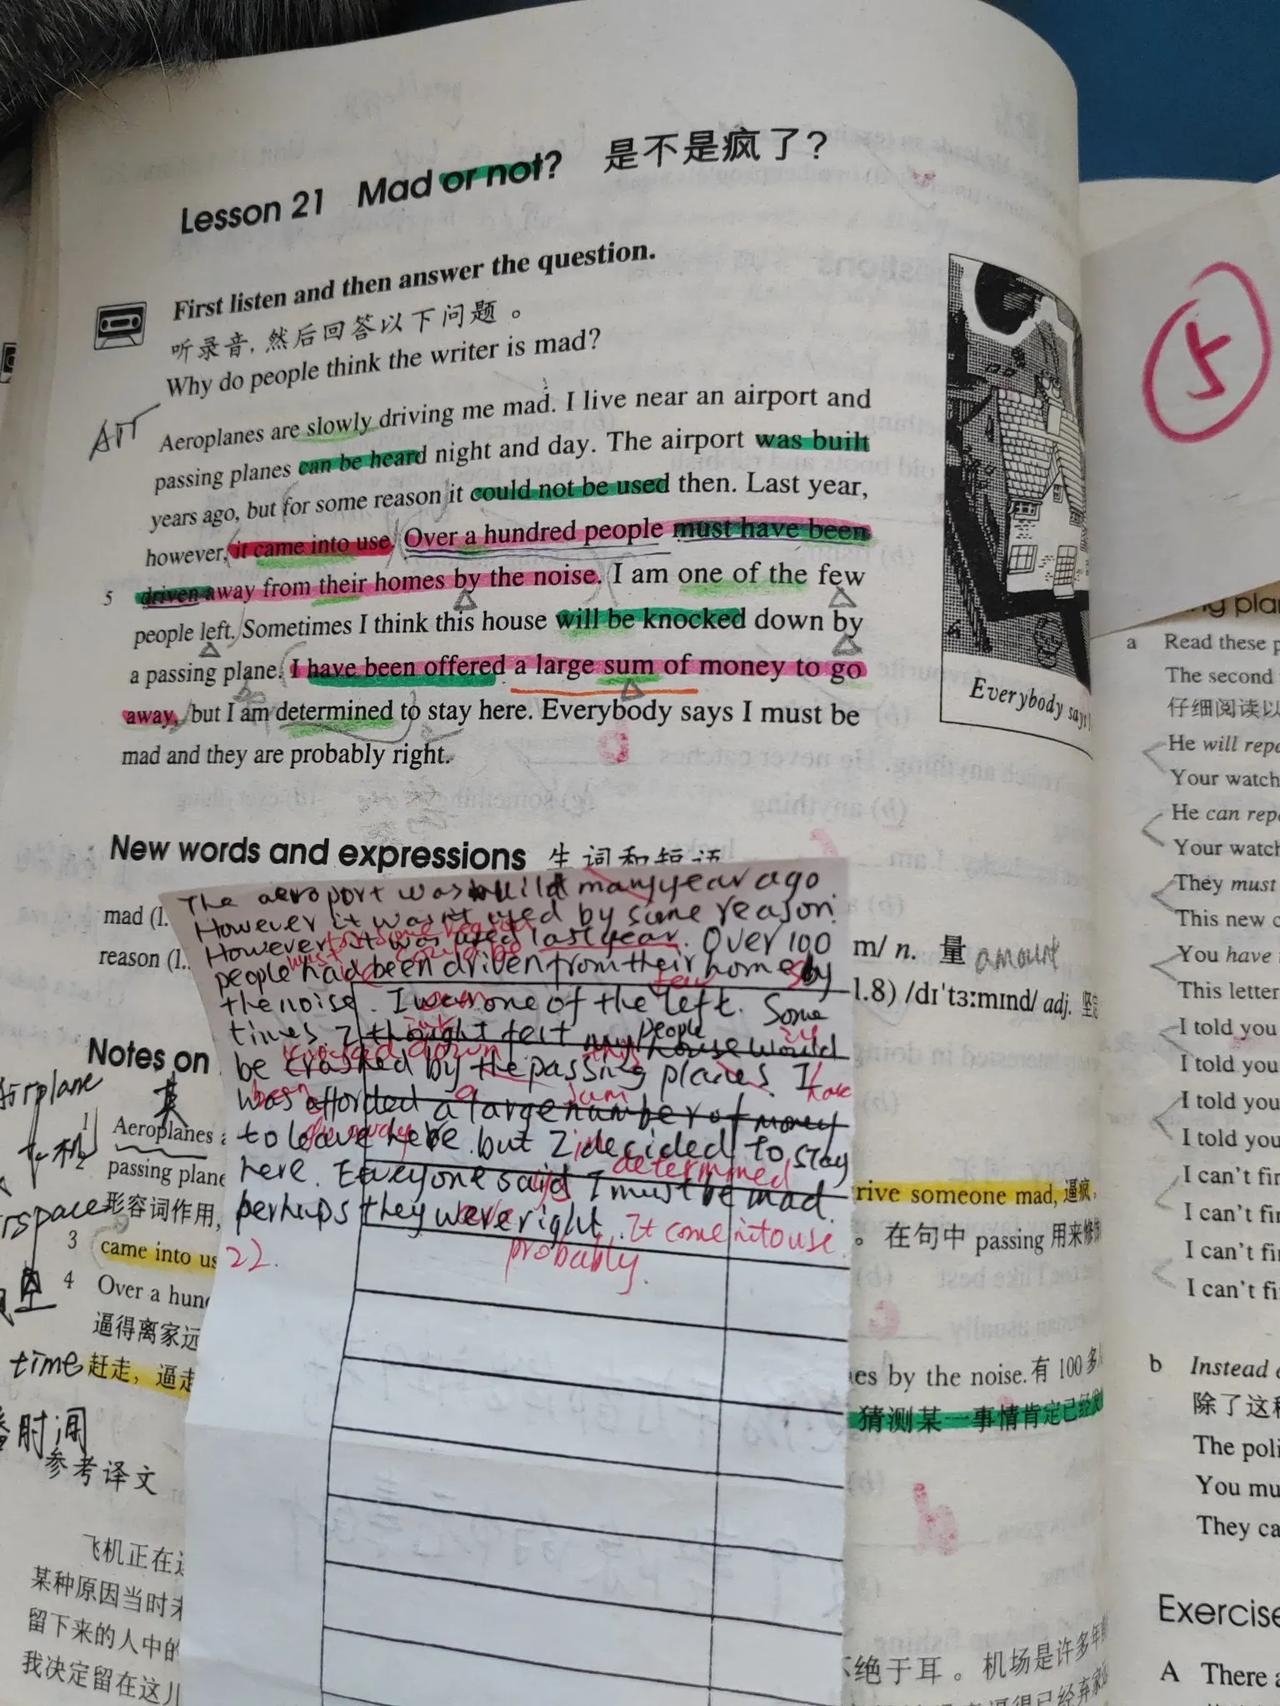 Lesson 21 Mad or not? 是不是疯了?
First listen and then answer the question.
听录音,然后回答以下问题。
Why do people think the writer is mad?
Aeroplanes are slowly driving me mad. I live near an airport and
passing planes can be heard night and day. The airport was built
years ago, but for some reason it could not be used then. Last year,
however, it came into use. Over a hundred people must have been
5 driven away from their homes by the noise. I am one of the few
people left. Sometimes I think this house will be knocked down by
a passing plane. I have been offered a large sum of money to go
away, but I am determined to stay here. Everybody says I must be
mad and they are probably right.
Everybody says
5
New words and expressions 生词和短语
mad (l.
reason (l.
m/ n. 量 amount
l.8) /dɪˈtɜːmɪnd/ adj. 坚定
The aeroport was build many year ago
However it wasn't used by some reason.
However it was used last year. Over 100
people had been driven from their homes by
the noise. I was one of the left. Some
times I thought felt my house would
be crashed by the passing planes. I
was afforded a large number of money
to leave here. but I decided to stay
here. Everyone said I must be mad.
perhaps they were right. It come into use.
probably.
22.
for some reason
must
could be
few
people
down
this
have
been
a
sum
go away
determined
Notes on
airplane
飞机
1 Aeroplanes a
passing plane
形容词作用,
3 came into us
4 Over a hun
逼得离家远
time 赶走,逼走
时间
参考译文
飞机正在
某种原因当时未
留下来的人中的
我决定留在这儿
rive someone mad, 逼疯,
。在句中 passing 用来修饰
es by the noise. 有 100 多人
猜测某一事情肯定已经发
不绝于耳。机场是许多年
ng plan
a Read these
The second
仔细阅读以
He will repa
Your watch
He can repa
Your watch
They must
This new
You have
This letter
I told you
I told you
I told you
I told you
I can't fin
I can't fin
I can't fin
I can't fin
b Instead
除了这种
The poli
You mu
They ca
Exercise
A There a